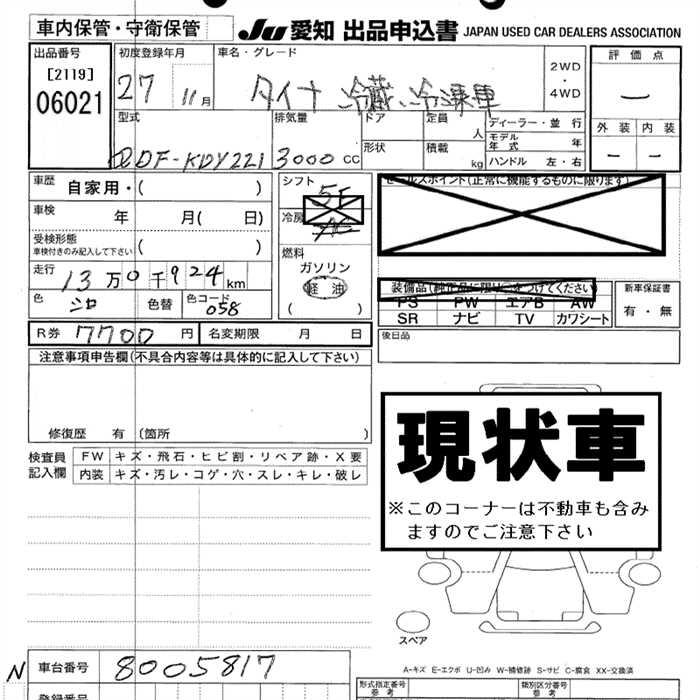 車内保管・守衛保管
JU 愛知 出品申込書 JAPAN USED CAR DEALERS ASSOCIATION
出品番号
[2119]
06021
初度登録年月
27 11月
車名・グレード
ダイナ 冷蔵、冷凍車
2WD
・
4WD
評価点
—
外装 内装
— —
型式
QDF-KDY221
排気量
3000 CC
ドア
形状
定員
人
積載
kg
ディーラー・並 行
モデル年式 年
ハンドル 左・右
車歴 自家用・( )
車検 年 月( 日)
受検形態
車検付きのみ記入して下さい ( )
走行 13万0千924km
色 シロ 色替 色コード 058
シフト 5F
冷房
燃料
ガソリン
軽 油
( )
セールスポイント(正常に機能するものに限ります)
装備品(純正品に限り○をつけてください)
PS PW エアB AW
SR ナビ TV カワシート
新車保証書
有・無
R券 7700 円 名変期限 月 日
後日品
注意事項申告欄(不具合内容等は具体的に記入して下さい)
修復歴 有 (箇所 )
検査員
記入欄
FW キズ・飛石・ヒビ割・リペア跡・X要
内装 キズ・汚レ・コゲ・穴・スレ・キレ・破レ
現状車
※このコーナーは不動車も含み
ますのでご注意下さい
スペア
A-キズ E-エクボ U-凹み W-補修跡 S-サビ C-腐食 XX-交換済
N 車台番号 8005817
登録番号
形式指定番号
参 考
類別区分番号
参 考